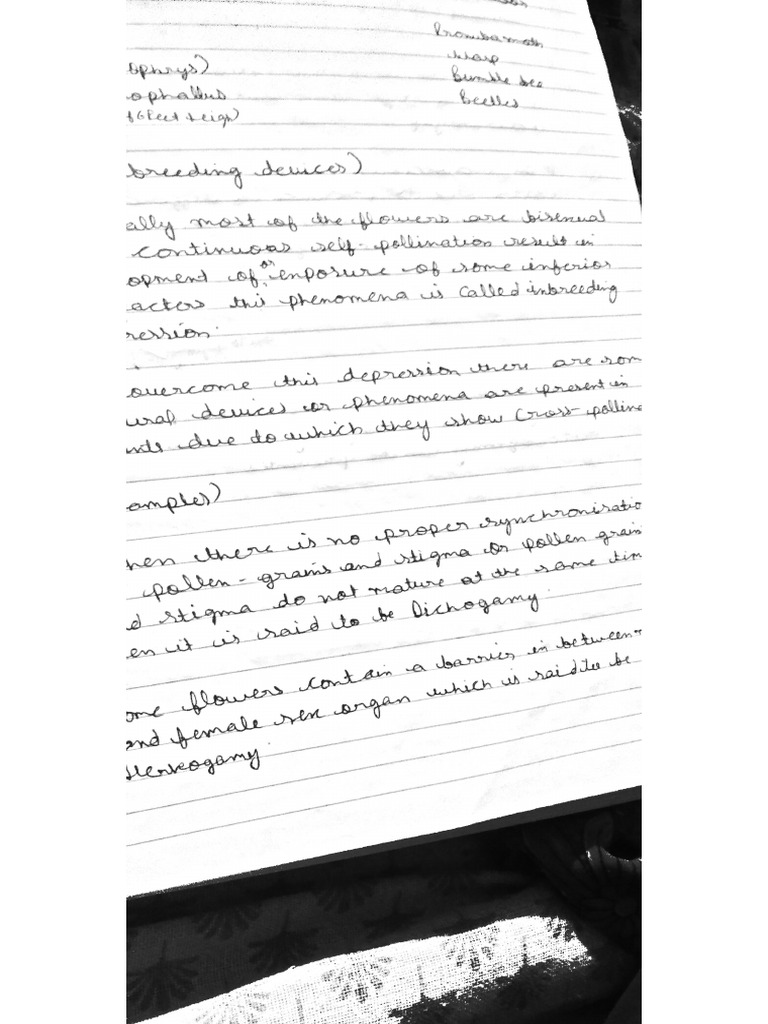 wasp
ophrys)
Bumble bee
ophallus
Beetles
(6 feet heigh)
breeding devices)
ally most of the flowers are bisexual
continuous self-pollination result in
opment of or exposure of some inferior
acters this phenomena is called inbreeding
ression.
overcome this depression there are som
ural devices or phenomena are present in
nts due to which they show cross-pollina
amples)
hen there is no proper synchronisatio
pollen-grains and stigma or pollen grain
d stigma do not mature at the same tim
en it is said to be Dichogamy.
ome flowers contain a barrier in between
and female sex organ which is said to be
Herkogamy.